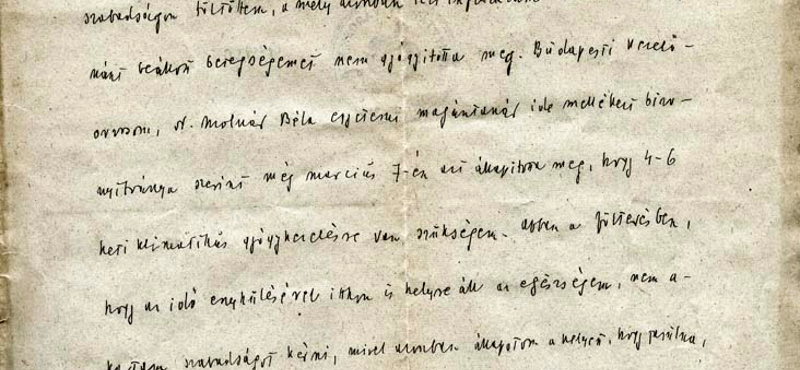 szabadságon töltöttem, a mely azonban téli
náns beállott betegségemet nem gyógyította meg. Budapesti kezelő-
orvosom, dr. Molnár Béla egyetemi magántanár ide mellékelt bizo-
nyítványa szerint még március 7-én azt állapította meg, hogy 4-6
heti klimatikus gyógykezelésre van szükségem. Abban a föltevésben,
hogy az idő enyhülésével itthon is helyre áll az egészségem, nem a-
kartam szabadságot kérni, mivel azonban állapotom a helyett, hogy javulna,